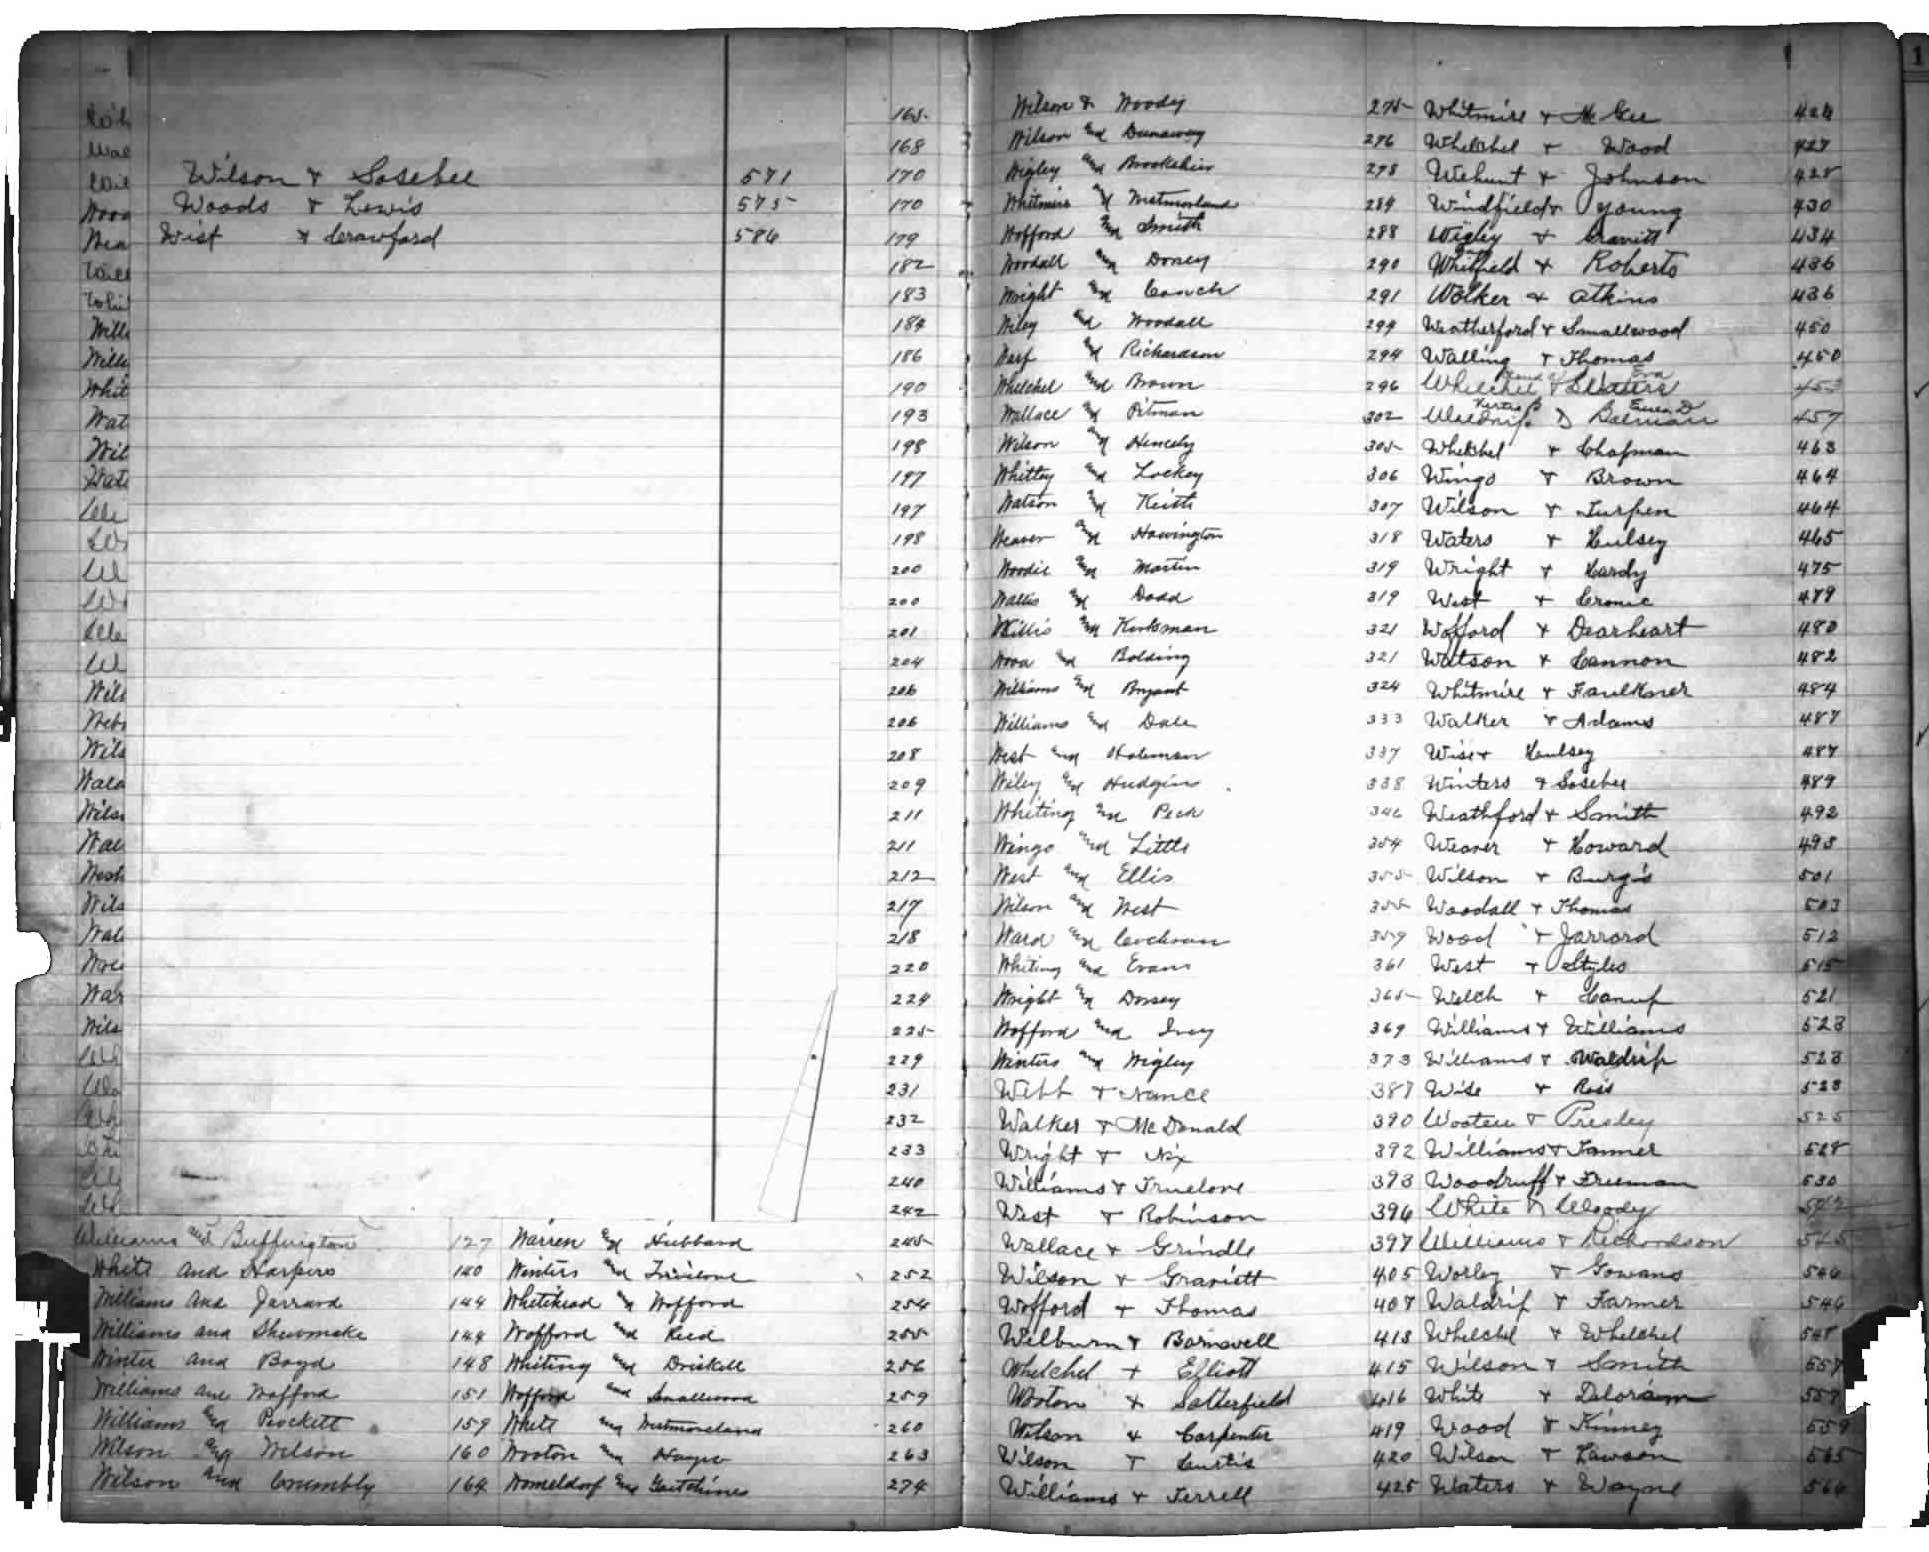 Wilson & Sosebee 571
Woods & Lewis 575
Wist & Crawford 586
165
168
170
170
179
182
183
184
186
190
193
198
197
197
198
200
200
201
204
206
206
208
209
211
211
212
217
218
220
224
225
229
231
232
233
240
242
Williams and Buffington 127 Warren and Hubbard 245
White and Harpers 140 Winters and Truelove 252
Williams and Jarrard 144 Whitehead and Wofford 254
Williams and Shewmake 144 Wofford and Reed 255
Winter and Boyd 148 Whiting and Driskell 256
Williams and Wofford 151 Wofford and Smallwood 259
Williams and Puckett 159 White and Westmoreland 260
Wilson and Wilson 160 Wooton and Hayes 263
Wilson and Crumbly 164 Womeldorf and 274
Wilson & Woody 275
Wilson and Dunaway 276
Wigley and Brookshier 278
Whitmire and Westmorland 284
Wofford and Smith 288
Woodall and Dorsey 290
Wright and Couch 291
Wiley and Woodall 294
and Richardson 294
Whelchel and Brown 296
Wallace and Pitman 302
Wilson and Hencely 305
Whitley and Lockey 306
Watson and Keith 307
Weaver and Howington 318
Woodie and Martin 319
Wallis and Dodd 319
Willis and Kinksman 321
Wood and Bolding 321
Williams and Bryant 324
Williams and Dale 333
West and Holeman 337
Wiley and Hudgins 338
Whiting and Peck 346
Wingo and Little 354
West and Ellis 355
Wilson and West 355
Ward and Cochran 359
Whiting and Evans 361
Wright and Dorsey 365
Wofford and Ivey 369
Winters and Wigley 373
Webb & Nance 387
Walker & McDonald 390
Wright & Nix 392
Williams & Truelove 393
West & Robinson 396
Wallace & Grindle 397
Wilson & Graviett 405
Wofford & Thomas 407
Wilburn & Barnwell 413
Whelchel & Elliott 415
Wooton & Satterfield 416
Wilson & Carpenter 419
Wilson & Curtis 420
Williams & Terrell 425
Whitmire & McGee 426
Whelchel & Wood 427
Wehunt & Johnson 428
Windfield & Young 430
Wigley & Gravitt 434
Whitfield & Roberts 436
Wolker & Atkins 436
Weatherford & Smallwood 450
Walling & Thomas 450
Eva
Whelchel & Slaters 453
Waldrip & 457
Whelchel & Chapman 463
Wingo & Brown 464
Wilson & Turpen 464
Waters & Hulsey 465
Wright & Hardy 475
West & Cronic 479
Wofford & Dearheart 480
Watson & Cannon 482
Whitmire & Faulkner 484
Walker & Adams 487
Wise & Hulsey 487
Winters & Sosebee 489
Weathford & Smith 492
Weaver & Howard 498
Wilson & Burgis 501
Woodall & Thomas 503
Wood & Jarrard 512
West & Styles 515
Welch & Canup 521
Williams & Williams 523
Williams & Waldrip 523
Wise & Reis 523
Wooten & Presley 525
Williams & Tanner 528
Woodruff & Freeman 530
White & Woody 542
Williams & Richardson 545
Worley & Gowans 546
Waldrip & Farmer 546
Whelchel & Whelchel 548
Wilson & Smith 557
White & 559
Wood & Kinney 559
Wilson & Lawson 565
Waters & Wayne 566
1